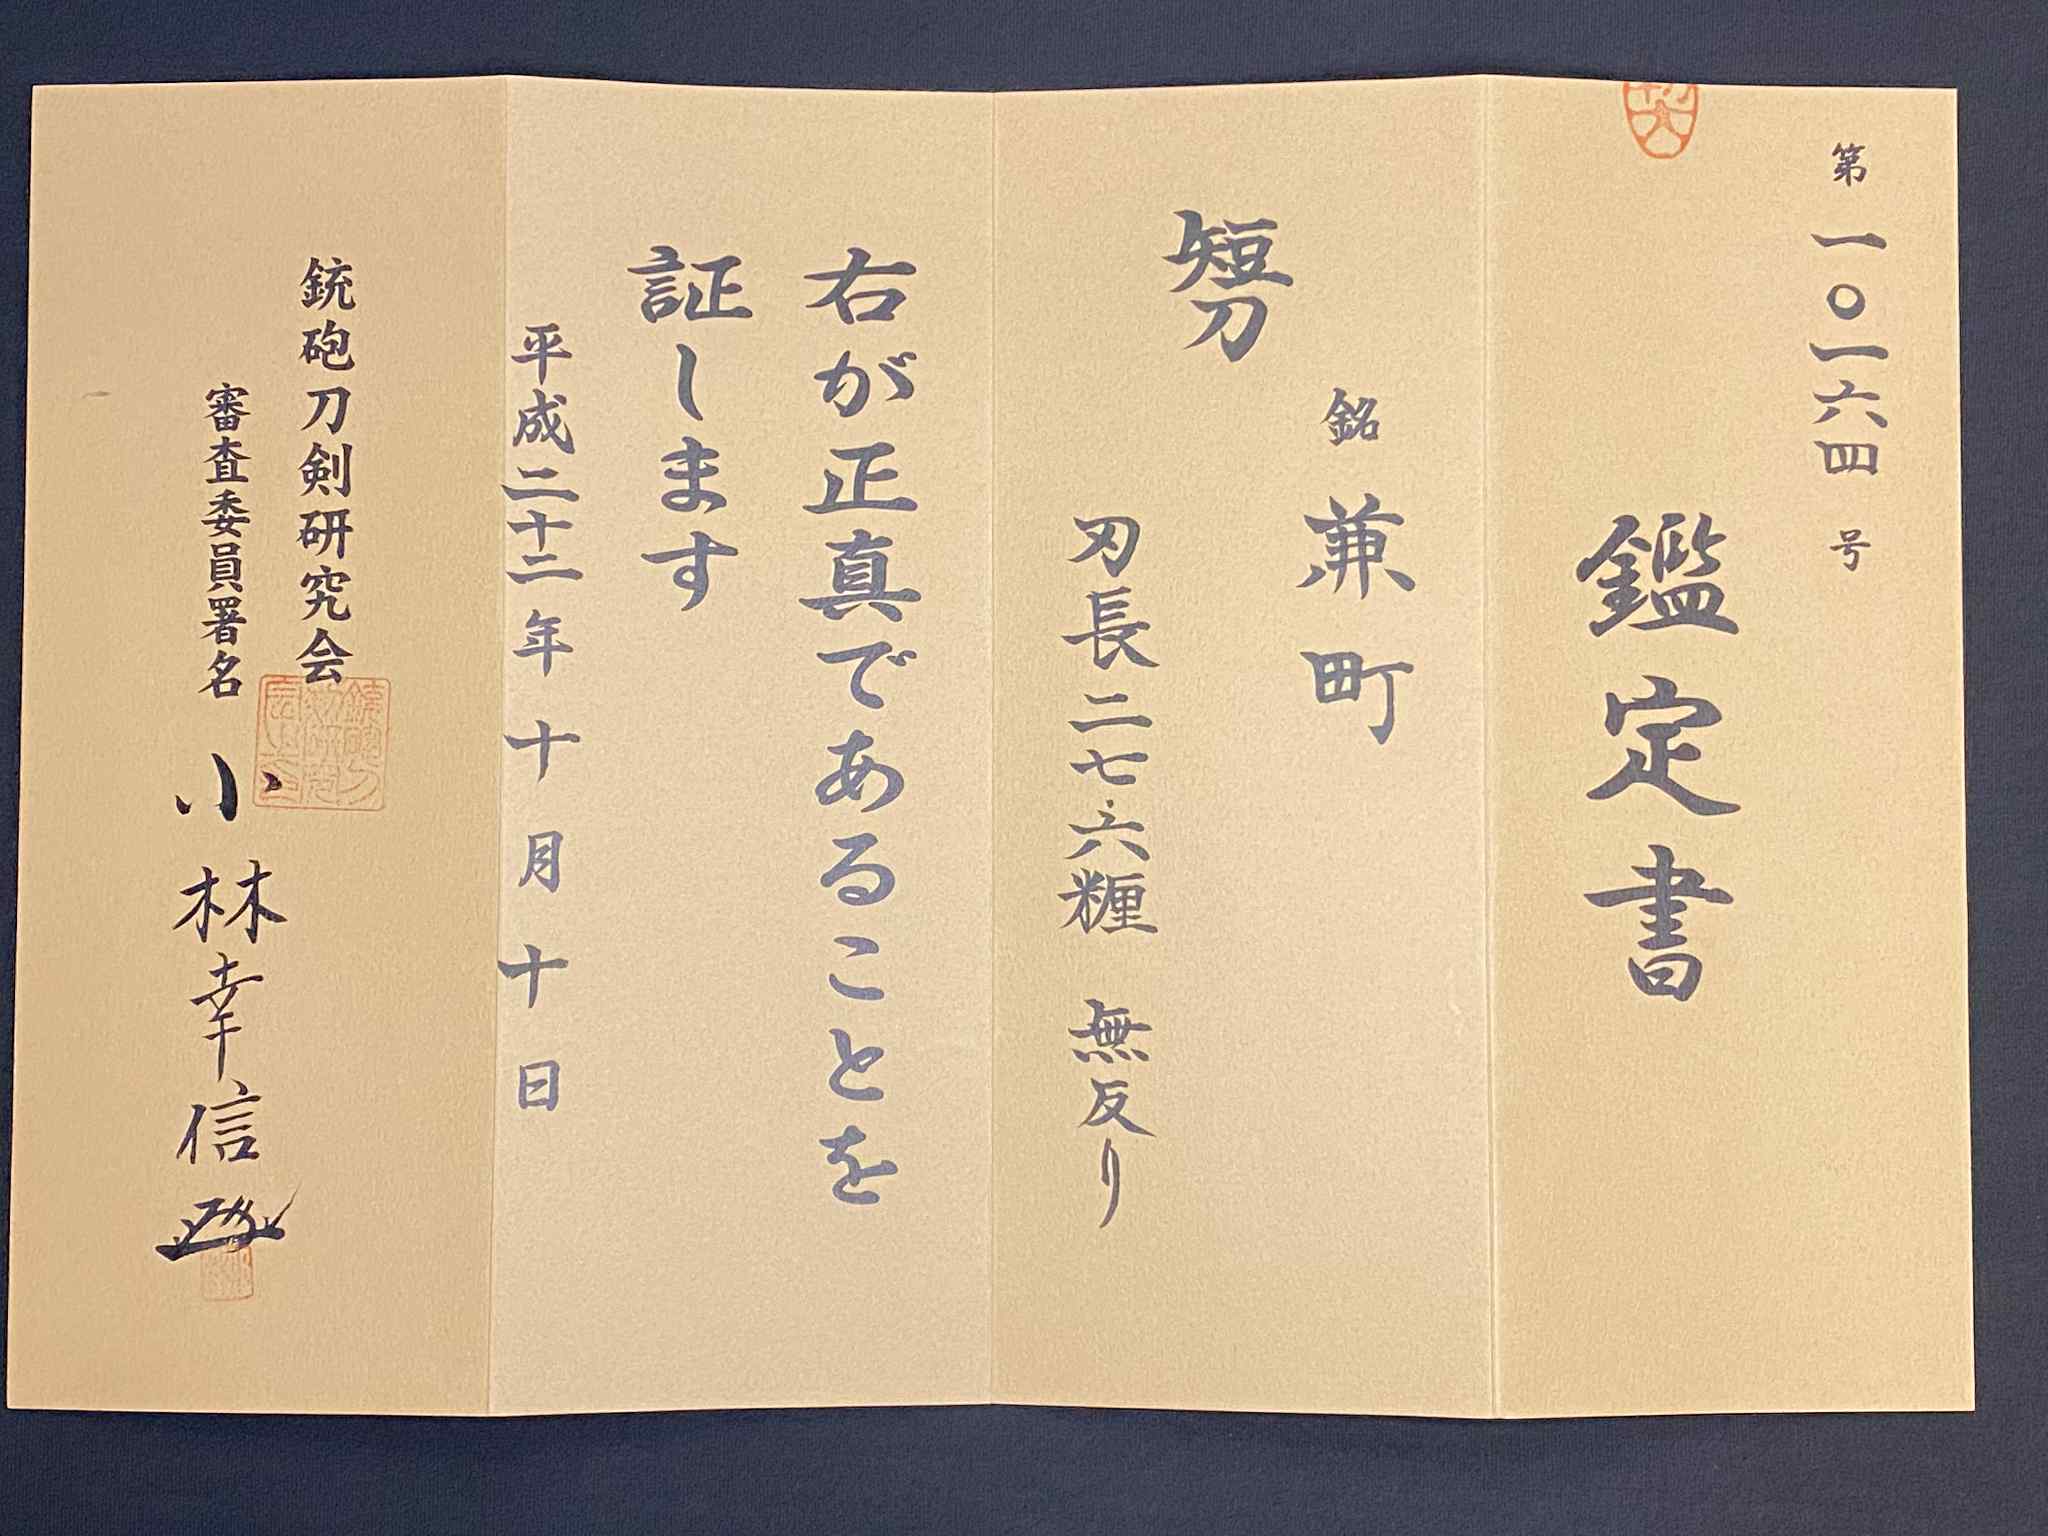 第一〇一六四号
鑑定書
銘 兼町
短刀
刃長二七・六糎 無反り
右が正真であることを
証します
平成二十二年十月十日
銃砲刀剣研究会
審査委員署名 小林幸信